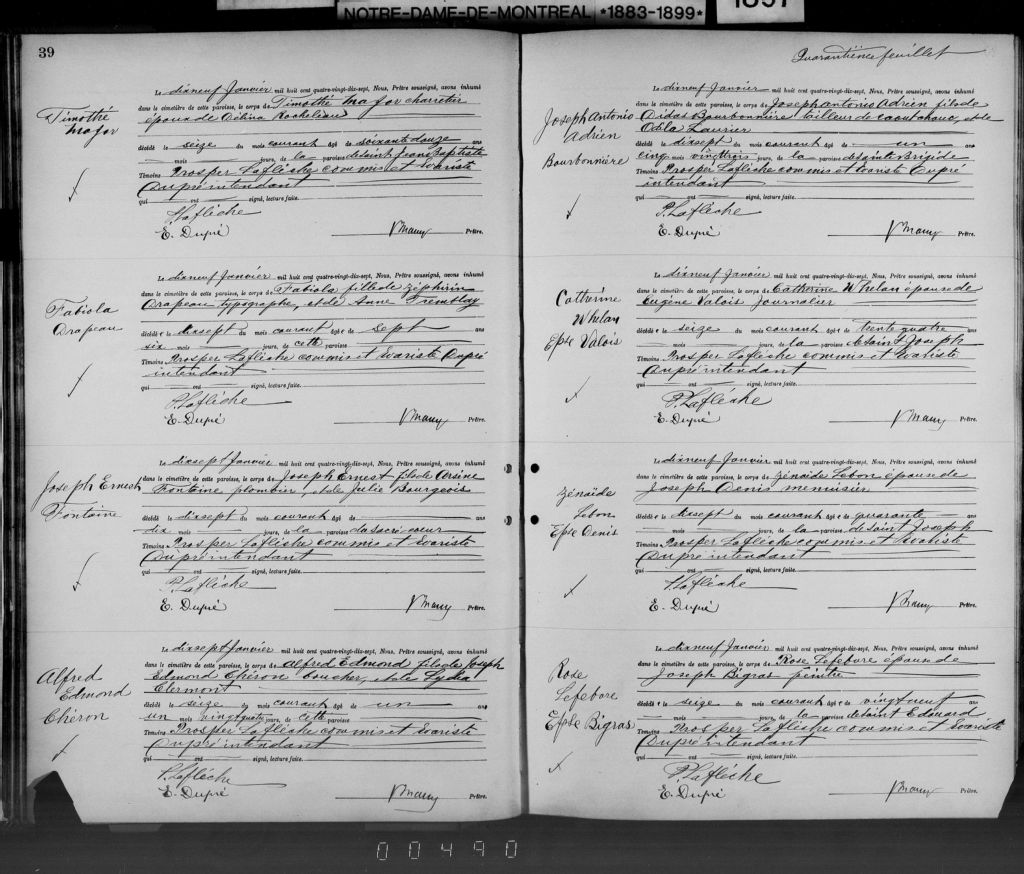 NOTRE-DAME-DE-MONTREAL *1883-1899*
1897
39
Timothé
Major
Le dixneuf Janvier mil huit cent quatre-vingt-dix-sept, Nous, Prêtre soussigné, avons inhumé
dans le cimetière de cette paroisse, le corps de Timothé Major charretier
époux de Délina Rocheleau
décédé le seize du mois courant âgé de soixante douze
mois jours, de la paroisse de saint Jean Baptiste
Témoins Prosper Laflèche commis et Evariste
Dupré intendant
qui ont signé, lecture faite.
P. Laflèche
E. Dupré Prêtre.
Fabiola
Drapeau
Le dixneuf Janvier mil huit cent quatre-vingt-dix-sept, Nous, Prêtre soussigné, avons inhumé
dans le cimetière de cette paroisse, le corps de Fabiola fille de Zéphirin
Drapeau typographe, et de Anne Tremblay
décédée le dixsept du mois courant âgée de sept ans
six mois jours, de cette paroisse
Témoins Prosper Laflèche commis et Evariste Dupré
intendant
qui ont signé, lecture faite.
P. Laflèche
E. Dupré Prêtre.
Joseph Ernest
Fontaine
Le dixsept Janvier mil huit cent quatre-vingt-dix-sept, Nous, Prêtre soussigné, avons inhumé
dans le cimetière de cette paroisse, le corps de Joseph Ernest fils de Arsène
Fontaine plombier, et de Julie Bourgeois
décédé le dixsept du mois courant âgé de ans
dix mois jours, de la paroisse du sacré coeur
Témoins Prosper Laflèche commis et Evariste
Dupré intendant
qui ont signé, lecture faite.
P. Laflèche
E. Dupré Prêtre.
Alfred
Edmond
Chéron
Le dixsept Janvier mil huit cent quatre-vingt-dix-sept, Nous, Prêtre soussigné, avons inhumé
dans le cimetière de cette paroisse, le corps de Alfred Edmond fils de Joseph
Edmond Chéron boucher, et de Lydia
Clermont
décédé le seize du mois courant âgé de un ans
un mois vingtquatre jours, de cette paroisse
Témoins Prosper Laflèche commis et Evariste
Dupré intendant
qui ont signé, lecture faite.
P. Laflèche
E. Dupré Prêtre.
Quarantième feuillet
Joseph Antonio
Adrien
Bourbonnière
Le dixneuf Janvier mil huit cent quatre-vingt-dix-sept, Nous, Prêtre soussigné, avons inhumé
dans le cimetière de cette paroisse, le corps de Joseph Antonio Adrien fils de
Didas Bourbonnière tailleur de caoutchouc, et de
Odila Laurier
décédé le dixsept du mois courant âgé de un ans
cinq mois vingttrois jours, de la paroisse de sainte Brigide
Témoins Prosper Laflèche commis et Evariste Dupré
intendant
qui ont signé, lecture faite.
P. Laflèche
E. Dupré Prêtre.
Catherine
Whelan
Epse Valois
Le dixneuf Janvier mil huit cent quatre-vingt-dix-sept, Nous, Prêtre soussigné, avons inhumé
dans le cimetière de cette paroisse, le corps de Catherine Whelan épouse de
Eugène Valois journalier
décédée le seize du mois courant âgée de trente quatre ans
mois jours, de la paroisse de saint Joseph
Témoins Prosper Laflèche commis et Evariste
Dupré intendant
qui ont signé, lecture faite.
P. Laflèche
E. Dupré Prêtre.
Zénaïde
Lebon
Epse Denis
Le dixneuf Janvier mil huit cent quatre-vingt-dix-sept, Nous, Prêtre soussigné, avons inhumé
dans le cimetière de cette paroisse, le corps de Zénaïde Lebon épouse de
Joseph Denis menuisier
décédée le dixsept du mois courant âgée de quarante ans
mois jours, de la paroisse de saint Joseph
Témoins Prosper Laflèche commis et Evariste
Dupré intendant
qui ont signé, lecture faite.
P. Laflèche
E. Dupré Prêtre.
Rose
Lefebvre
Epse Bigras
Le dixneuf Janvier mil huit cent quatre-vingt-dix-sept, Nous, Prêtre soussigné, avons inhumé
dans le cimetière de cette paroisse, le corps de Rose Lefebvre épouse de
Joseph Bigras peintre
décédée le seize du mois courant âgée de vingtneuf ans
mois jours, de la paroisse de saint Edouard
Témoins Prosper Laflèche commis et Evariste
Dupré intendant
qui ont signé, lecture faite.
P. Laflèche
E. Dupré Prêtre.
00490